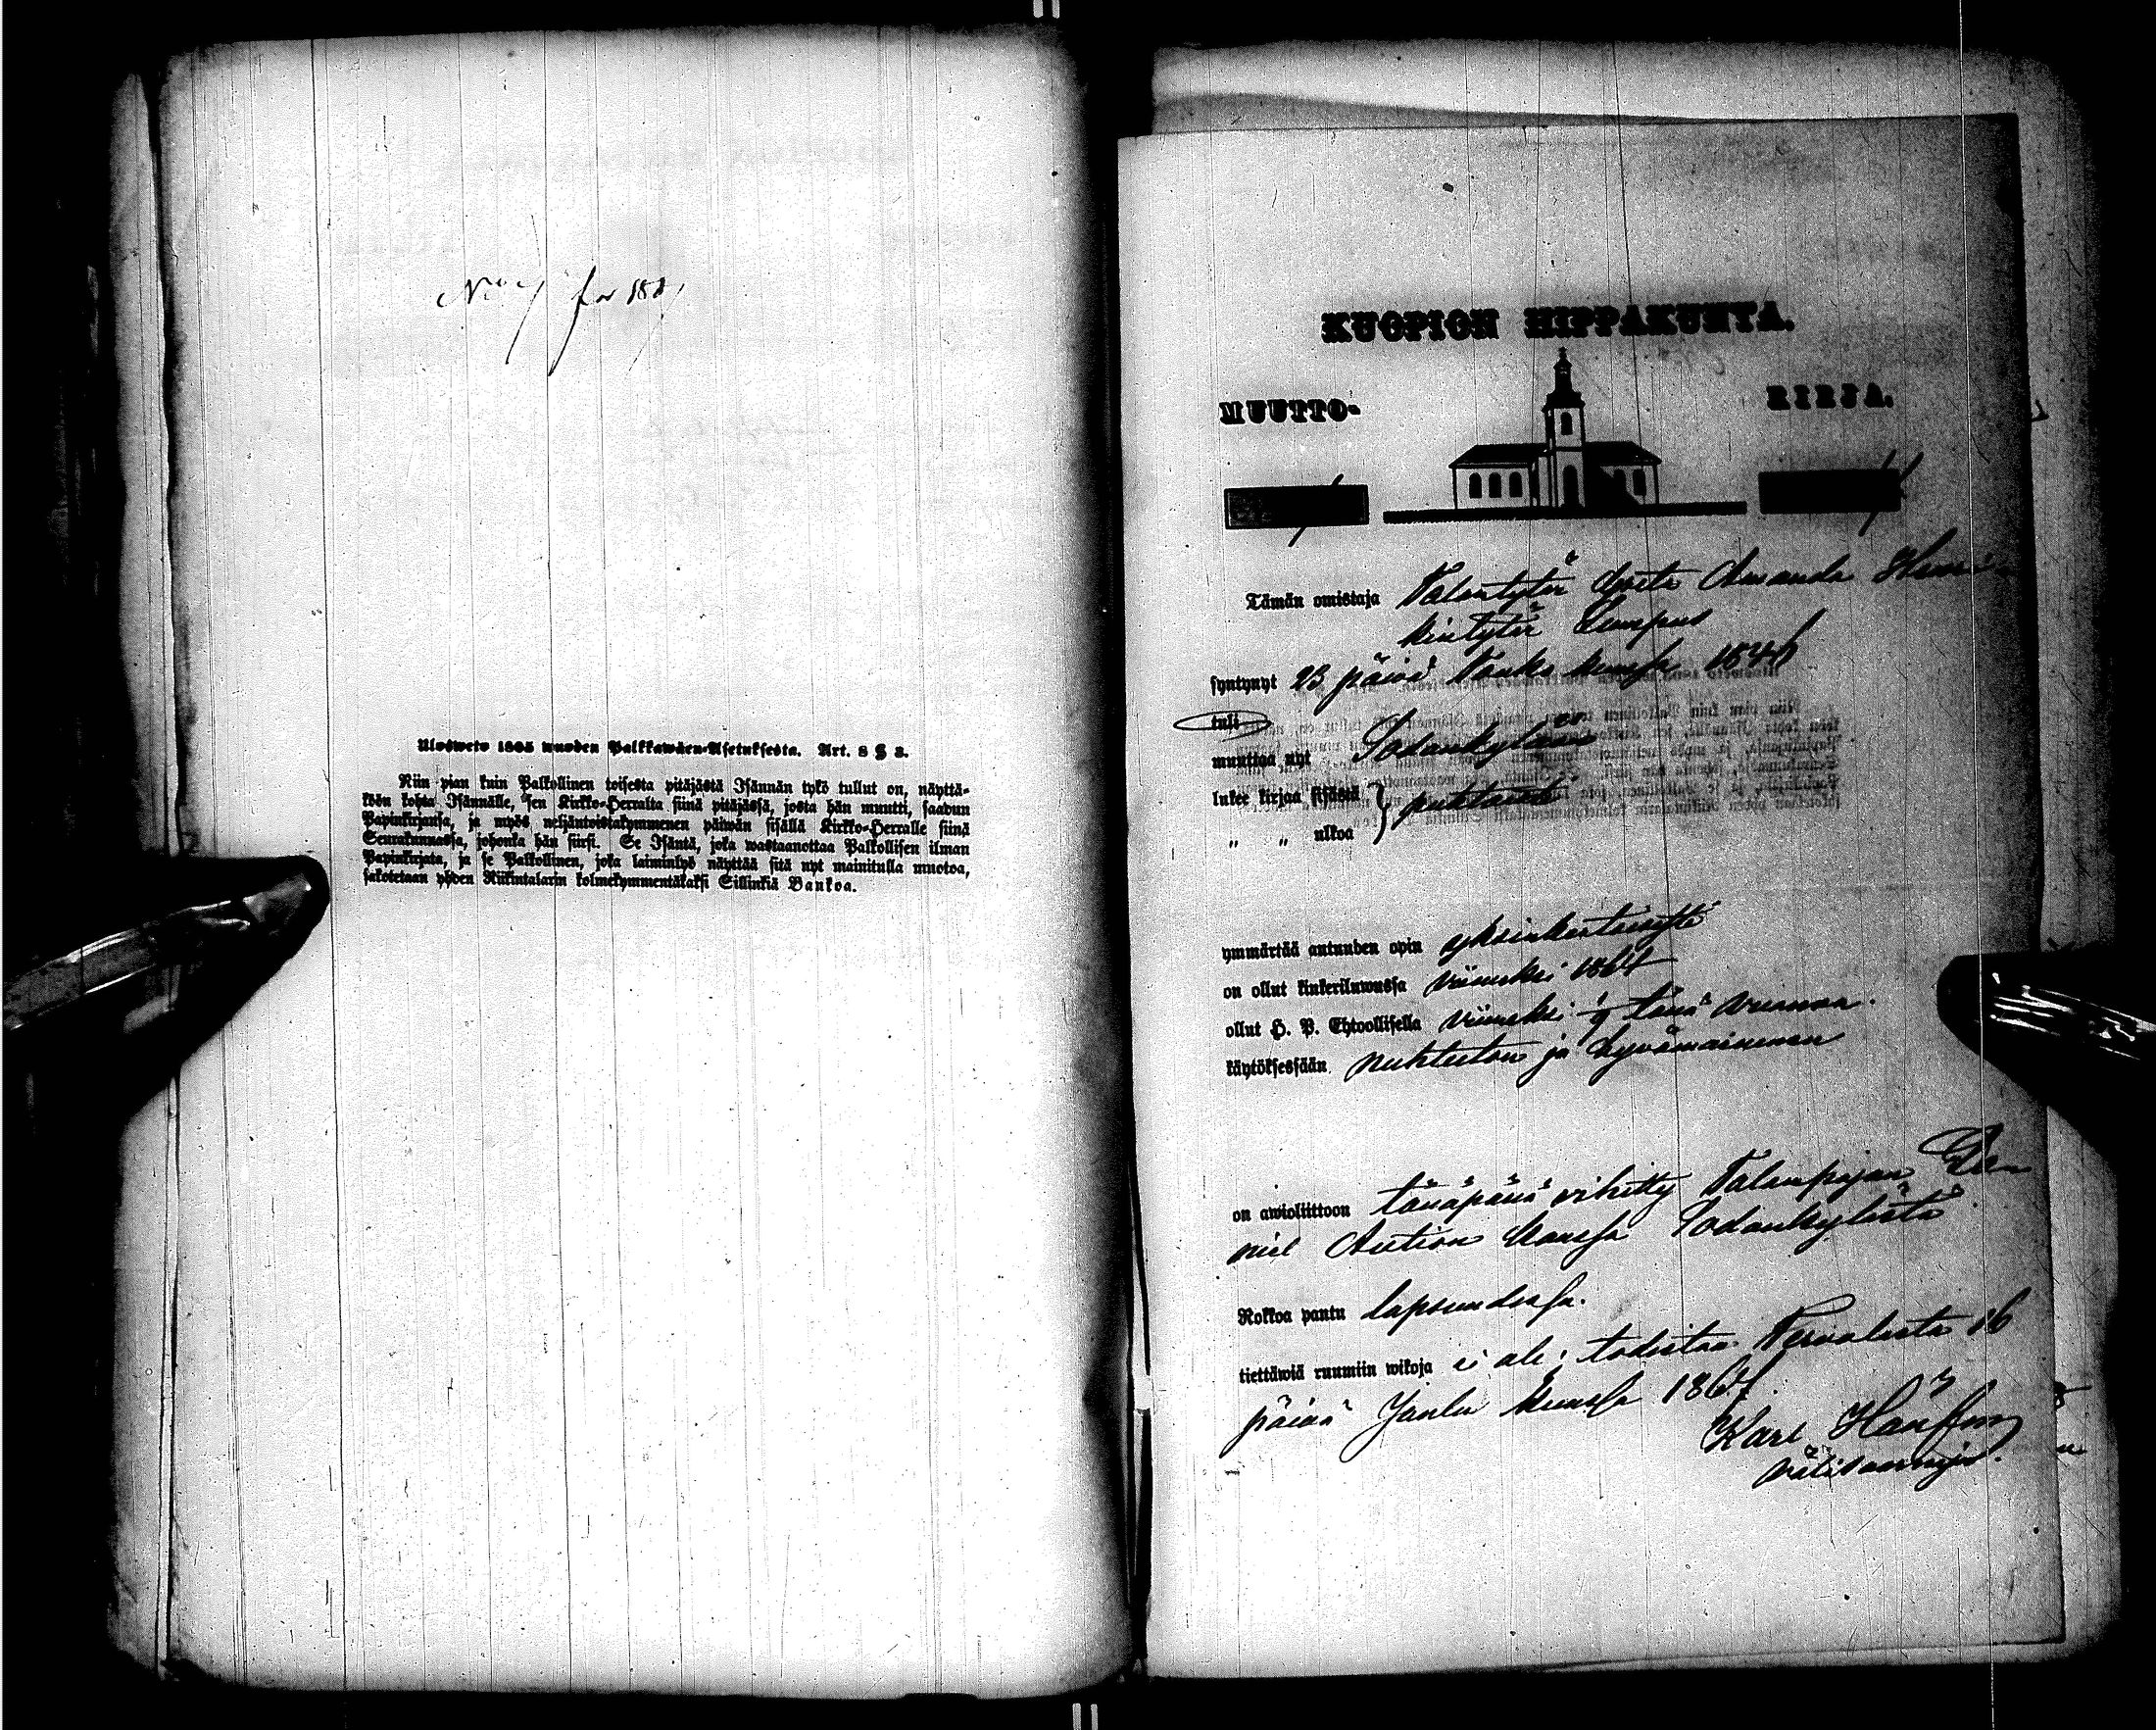 Ulosweto 1805 wuoden Palkkawäen-Asetuksesta. Art. 8 § 3.
Niin pian kuin Palkollinen toisesta pitäjästä Isännän tykö tullut on, näyttä-
köön kohta Isännälle, sen Kirkko-Herralta siinä pitäjässä, josta hän muutti, saadun
Papinkirjansa, ja myös neljäntoistakymmenen päiwän sisällä Kirkko-Herralle siinä
Seurakunnassa, johonka hän siirsi. Se Isäntä, joka wastaanottaa Palkollisen ilman
Papinkirjata, ja se Palkollinen, joka laiminlyö näyttää sitä nyt mainitulla muotoa,
sakotetaan yhden Riikintalarin kolmekymmentäkaksi Sillinkiä Bankoa.
KUOPION HIPPAKUNTA.
MUUTTO- KIRJA.
Tämän omistaja Talontytär Greta Amanda Henri
kintytär Lampus
syntynyt 23 päivä Touko kuussa 1846
tuli
muuttaa nyt Sodankylään
lukee kirjaa sisästä } puhtaasti
" " ulkoa
ymmärtää autuuden opin yksinkertaisesti
on ollut kinkeriluwussa viimeksi 1864
ollut H. P. Ehtoollisella viimeksi tänä vuonna.
käytöksessään nuhteeton ja hyvämaineinen
on awioliittoon tänäpänä vihitty Talonpojan
niel Aution kanssa Sodankylästä
Rokkoa pantu lapsuudessa.
tiettäwiä ruumiin wikoja ei ole; todistaa Tervolasta 16
päivä Joulu kuussa 1864.
Karl
välisaarnaaja.